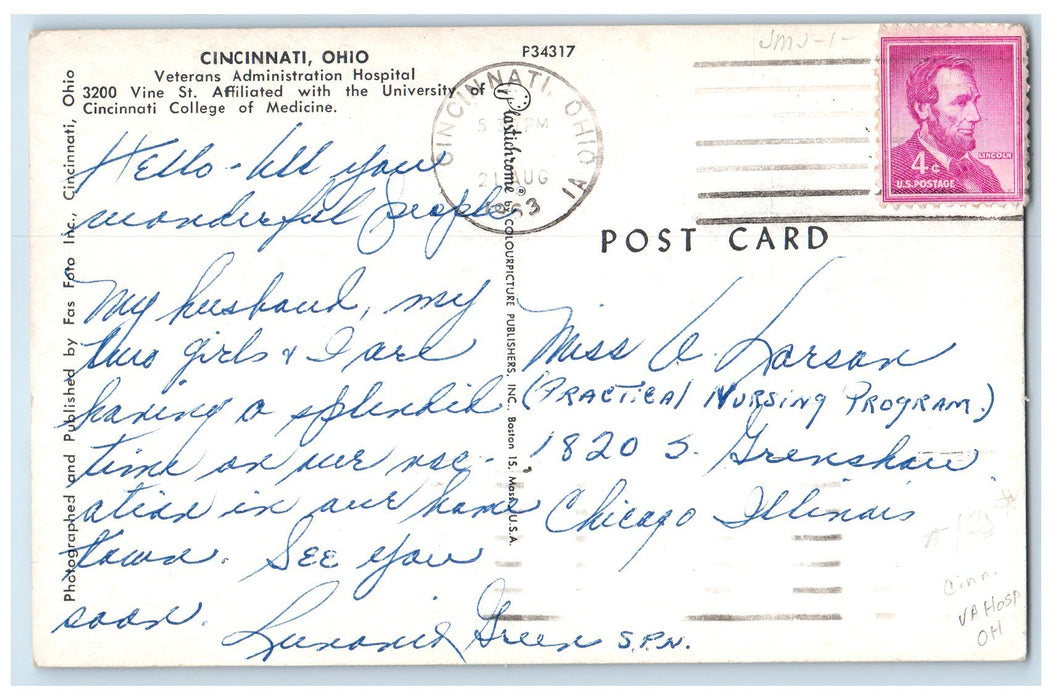 CINCINNATI, OHIO
Veterans Administration Hospital
3200 Vine St. Affiliated with the University of
Cincinnati College of Medicine.
P34317
CINCINNATI, OHIO
PM
21 AUG
1963
1A
4¢
LINCOLN
U.S. POSTAGE
POST CARD
Hello - All you
wonderful people
My husband, my
two girls & I are
having a splendid
time on our vac-
ation in our home
town. See you
soon.
Green S.P.N.
Photographed and Published by Fas Foto Inc., Cincinnati, Ohio
Plastichrome ® by COLOURPICTURE PUBLISHERS, INC., Boston 15, Mass., U.S.A.
Miss V. Larson
(PRACTICAL NURSING PROGRAM.)
1820 S. Grenshaw
Chicago Illinois
Cinn.
VA HOSP
OH